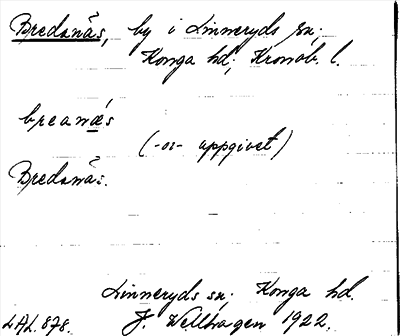 Bredanäs, by i Linneryds sn;
Konga hd; Kronob. l.
breanǽs
(-os- uppgivet)
Bredanäs.
Linneryds sn; Konga hd.
LAL. 878. J. Wellhagen 1922.